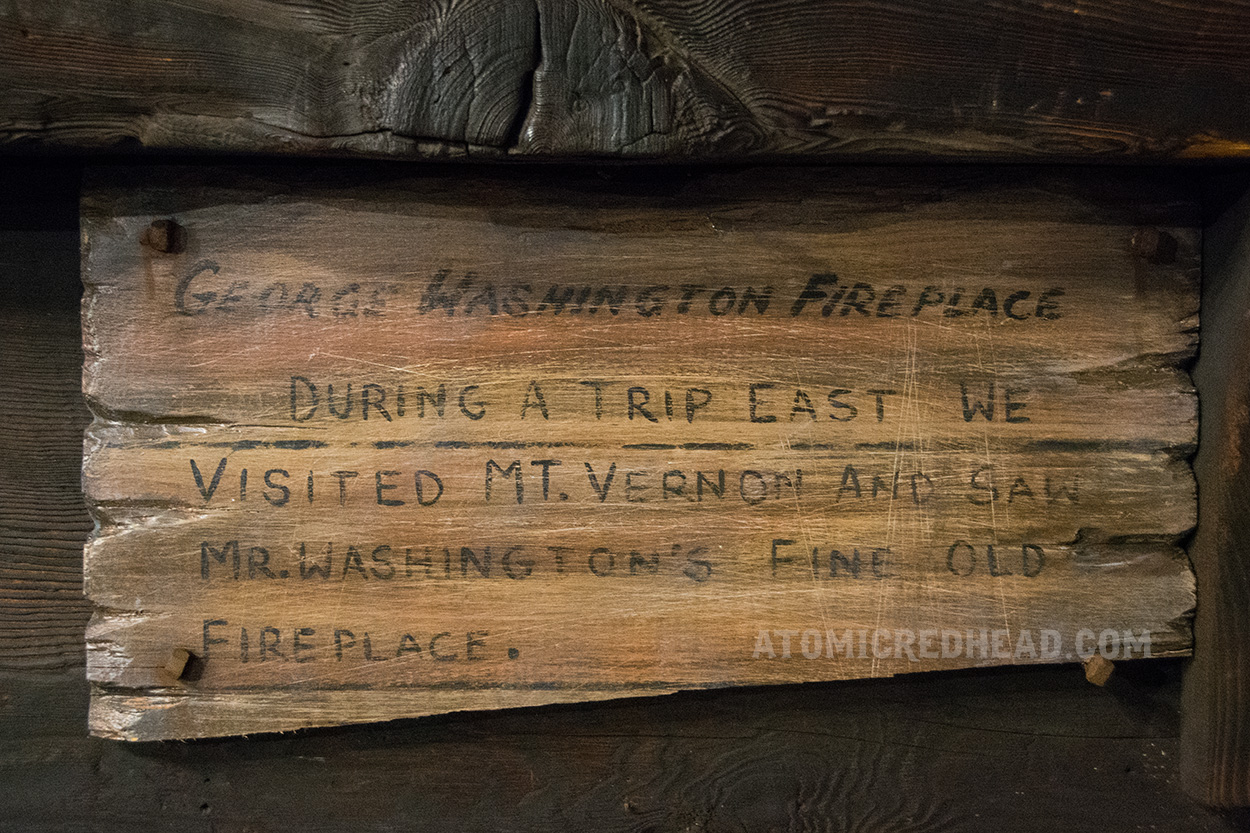 GEORGE WASHINGTON FIREPLACE
DURING A TRIP EAST WE
VISITED MT. VERNON AND SAW
MR. WASHINGTON'S FINE OLD
FIREPLACE.
ATOMICREDHEAD.COM